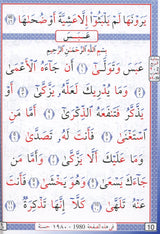 يَرَوْنَهَا لَمْ يَلْبَثُوٓا۟ إِلَّا عَشِيَّةً أَوْ ضُحَىٰهَا ﴿٤٦﴾
عَبَسَ
بِسْمِ اللَّهِ الرَّحْمَٰنِ الرَّحِيمِ
عَبَسَ وَتَوَلَّىٰٓ ﴿١﴾ أَن جَآءَهُ ٱلْأَعْمَىٰ
﴿٢﴾ وَمَا يُدْرِيكَ لَعَلَّهُۥ يَزَّكَّىٰٓ ﴿٣﴾ أَوْ
يَذَّكَّرُ فَتَنفَعَهُ ٱلذِّكْرَىٰٓ ﴿٤﴾ أَمَّا مَنِ
ٱسْتَغْنَىٰ ﴿٥﴾ فَأَنتَ لَهُۥ تَصَدَّىٰ ﴿٦﴾
وَمَا عَلَيْكَ أَلَّا يَزَّكَّىٰ ﴿٧﴾ وَأَمَّا مَن
جَآءَكَ يَسْعَىٰ ﴿٨﴾ وَهُوَ يَخْشَىٰ ﴿٩﴾ فَأَنتَ
عَنْهُ تَلَهَّىٰ ﴿١٠﴾ كَلَّآ إِنَّهَا تَذْكِرَةٌ ﴿١١﴾
في هذه الصفحة 1980 - ١٩٨٠ حسنة
10